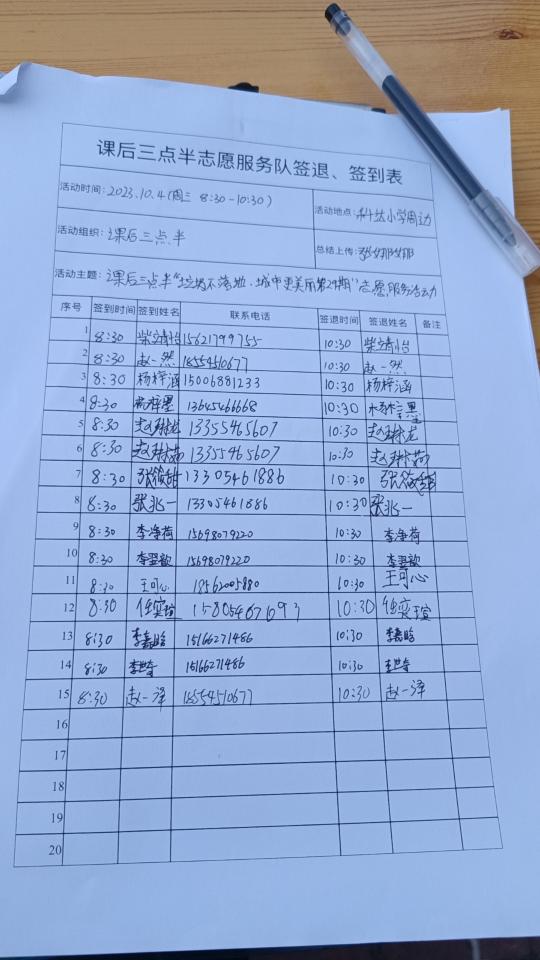 课后三点半志愿服务队签退、签到表
活动时间：2023.10.4(周三 8:30-10:30)
活动地点：科达小学周边
活动组织：课后三点半
总结上传：张娜娜
活动主题：课后三点半“垃圾不落地·城市更美丽第29期”志愿服务活动
序号 签到时间 签到姓名 联系电话 签退时间 签退姓名 备注
1 8:30 柴靖怡 15621799755 10:30 柴靖怡
2 8:30 赵一然 18554510677 10:30 赵一然
3 8:30 杨梓涵 15006881233 10:30 杨梓涵
4 8:30 13645466668 10:30 杨梓墨
5 8:30 赵琳龙 13355465607 10:30 赵琳龙
6 8:30 赵琳茹 13355465607 10:30 赵琳茹
7 8:30 13305461886 10:30
8 8:30 张兆一 13305461886 10:30 张兆一
9 8:30 李净荷 15698079220 10:30 李净荷
10 8:30 李翌歆 15698079220 10:30 李翌歆
11 8:30 王可心 18562005880 10:30 王可心
12 8:30 任奕瑄 15805467093 10:30 任奕瑄
13 8:30 李嘉晗 15166271486 10:30 李嘉晗
14 8:30 15166271486 10:30
15 8:30 赵一泽 18554510677 10:30 赵一泽
16
17
18
19
20